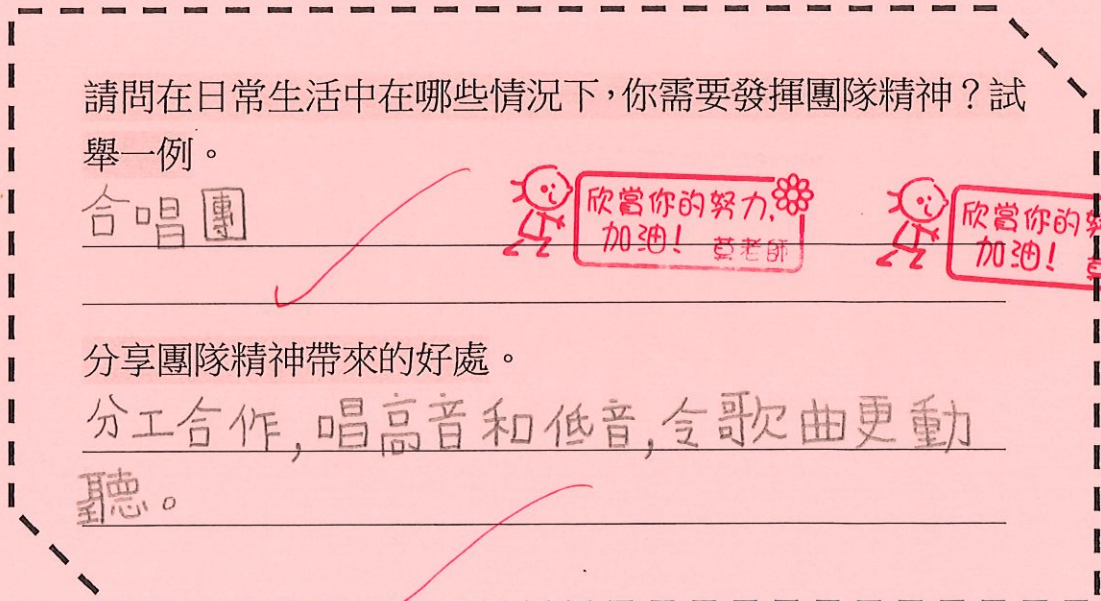 請問在日常生活中在哪些情況下，你需要發揮團隊精神？試
舉一例。
合唱團
欣賞你的努力，
加油！ 莫老師
欣賞你的努
加油！
分享團隊精神帶來的好處。
分工合作，唱高音和低音，令歌曲更動
聽。